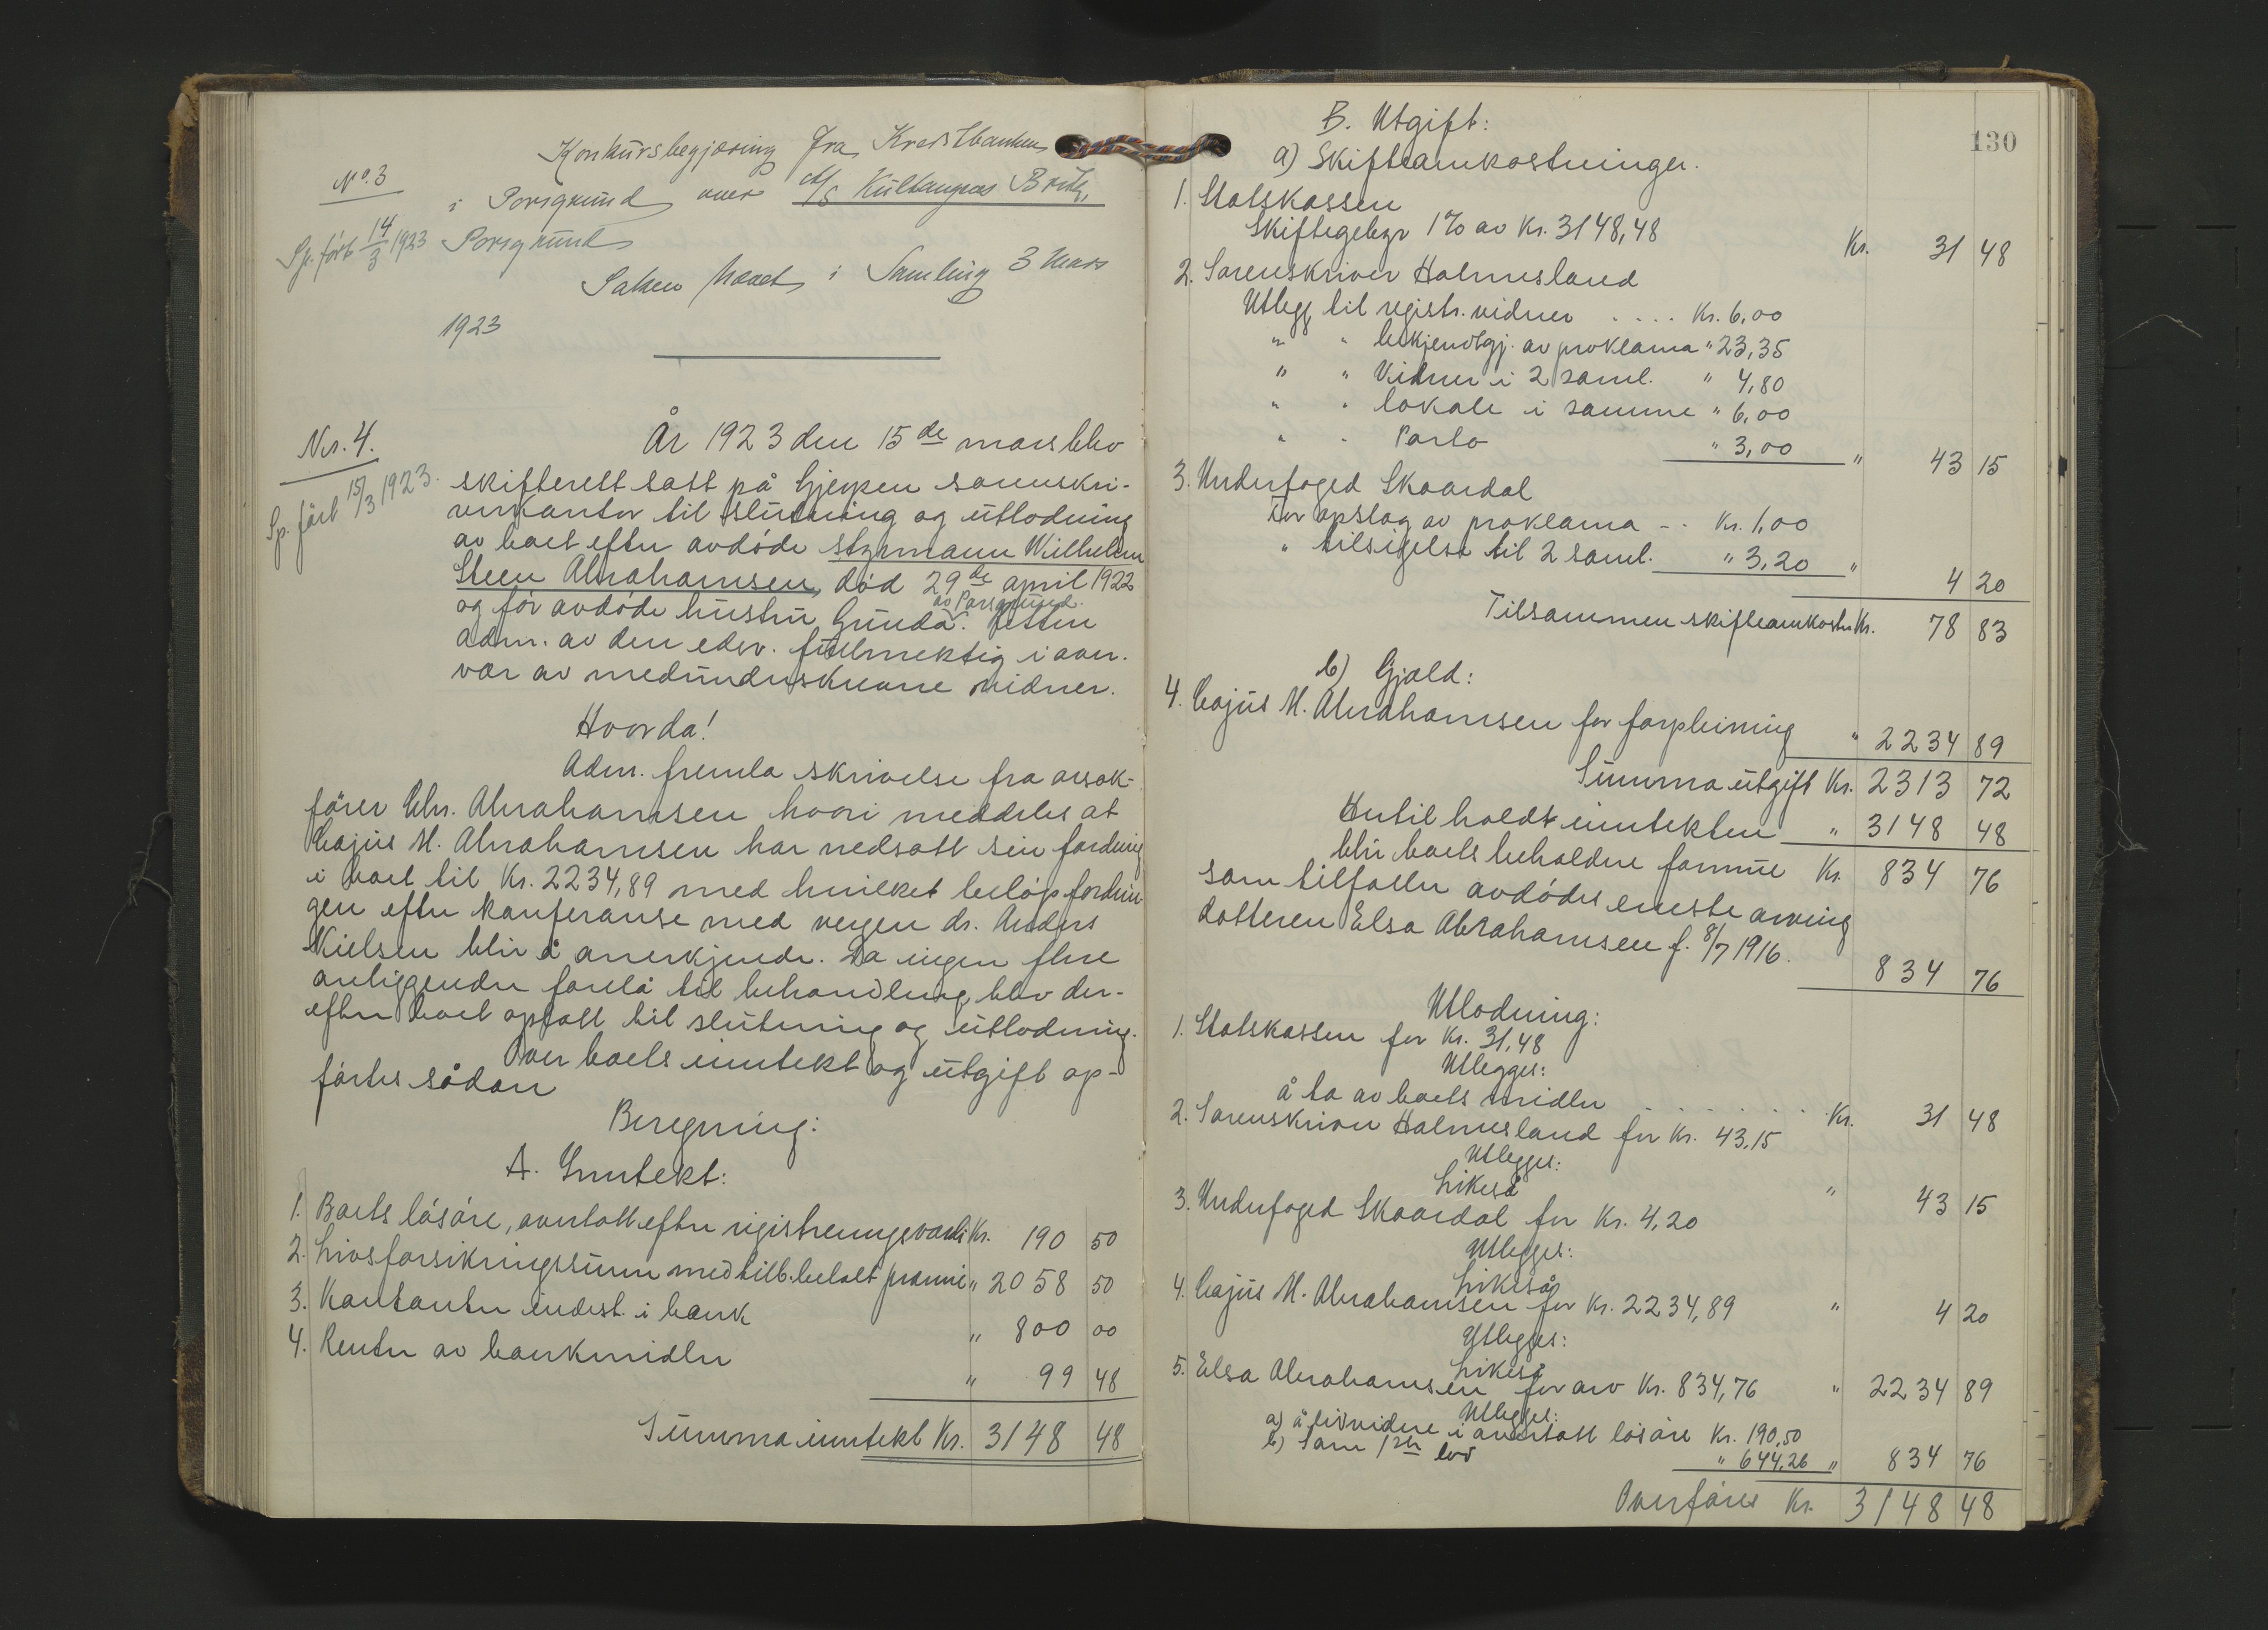 Konkursbegjæring fra Kreditbanken
No. 3
i Porsgrund over A/S
Sp. ført 14/3 1923
Porsgrund
Saken hævet i Samling 3 mars
1923
Nr. 4.
Sp. ført 15/3 1923.
År 1923 den 15de mars blev
skifterett satt på Gjerpen sorenskri-
verkontor til slutning og utlodning
av boet efter avdøde styrmann Wilhelm
Steen Abrahamsen, død 29de april 1922
og før avdøde hustru Gunda av Porsgrund. Retten
adm. av den edsv. fullmektig i over-
vær av medunderskrevne vidner.
Hvorda!
Adm. fremla skrivelse fra o.r.sak-
fører Chr. Abrahamsen hvori meddeles at
Cajus M. Abrahamsen har nedsatt sin fordring
i boet til Kr. 2234,89 med hvilket beløp fordrin-
gen efter konferanse med vergen dr. Anders
Nielsen blir å anerkjende. Da ingen flere
anliggender forelå til behandling blev der-
efter boet opsatt til slutning og utlodning.
Over boets inntekt og utgift op-
førtes sådan
Beregning:
A. Inntekt:
1. Boets løsøre, overtatt efter registreringsverdi Kr. 190 50
2. Livsforsikringssum med tilb.betalt premie " 2058 50
3. Kontanter indest. i bank " 800 00
4. Renter av bankmidler " 99 48
Summa inntekt Kr. 3148 48
130
B. Utgift:
a) Skifteomkostninger.
1. Statskassen
Skiftegebyr 1% av Kr. 3148,48 Kr. 31 48
2. Sorenskriver Holmesland
Utlegg til registr. vidner .... Kr. 6,00
" " bekjendtgj. av proklama " 23,35
" " Vidner i 2 saml. " 4,80
" " lokale i samme " 6,00
" " Porto " 3,00 " 43 15
3. Underfoged Skaardal
For opslag av proklama -- Kr. 1,00
" tilsigelse til 2 saml. " 3,20 " 4 20
Tilsammen skifteomkostn. Kr. 78 83
b) Gjæld:
4. Cajus M. Abrahamsen for forpleining " 2234 89
Summa utgift Kr. 2313 72
Hertil holdt inntekten " 3148 48
blir boets beholdne formue Kr. 834 76
som tilfaller avdødes eneste arving
datteren Elsa Abrahamsen f. 8/7 1916. 834 76
Utlodning:
1. Statskassen for Kr. 31,48
Utlegges:
å ta av boets midler ........ Kr. 31 48
2. Sorenskriver Holmesland for Kr. 43,15
Utlegges:
Likeså " 43 15
3. Underfoged Skaardal for Kr. 4,20
Utlegges:
Likeså " 4 20
4. Cajus M. Abrahamsen for Kr. 2234,89
Utlegges:
Likeså " 2234 89
5. Elsa Abrahamsen for arv Kr. 834,76
Utlegges:
a) å likvidere i overtatt løsøre Kr. 190,50
b) Som 1ste lod " 644,26 " 834 76
Overføres Kr. 3148 48